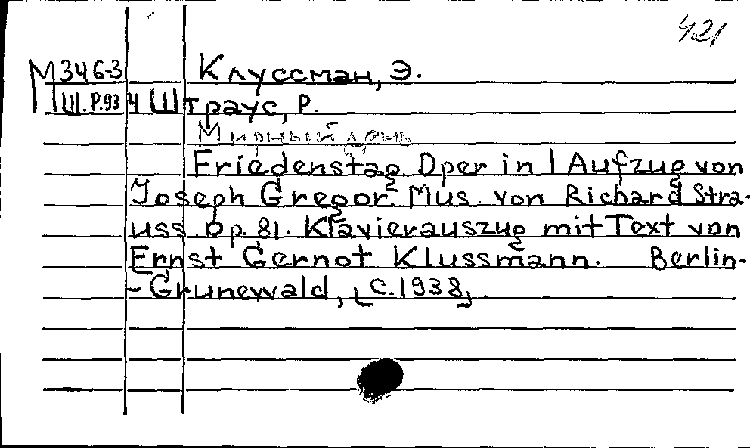 421
М346-3 Клуссман, Э.
Ш.Р.93 ч Штраус, Р.
Мирный день
Friedenstag Oper in 1 Aufzug von
Joseph Gregor. Mus. von Richard Stra-
uss. Op. 81. Klavierauszug mit Text von
Ernst Gernot Klussmann. Berlin-
-Grunewald, [C.1938].